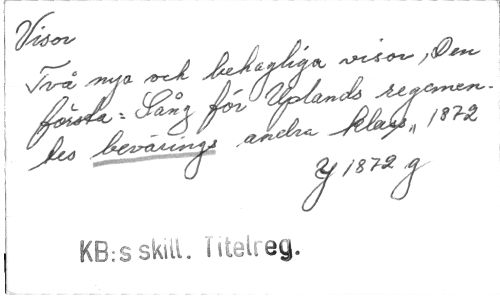 Visor
Två nya och behagliga visor, Den
första: Sång för Uplands regemen-
tes bevärings andra klass, 1872
Y 1872 g
KB:s skill. Titelreg.